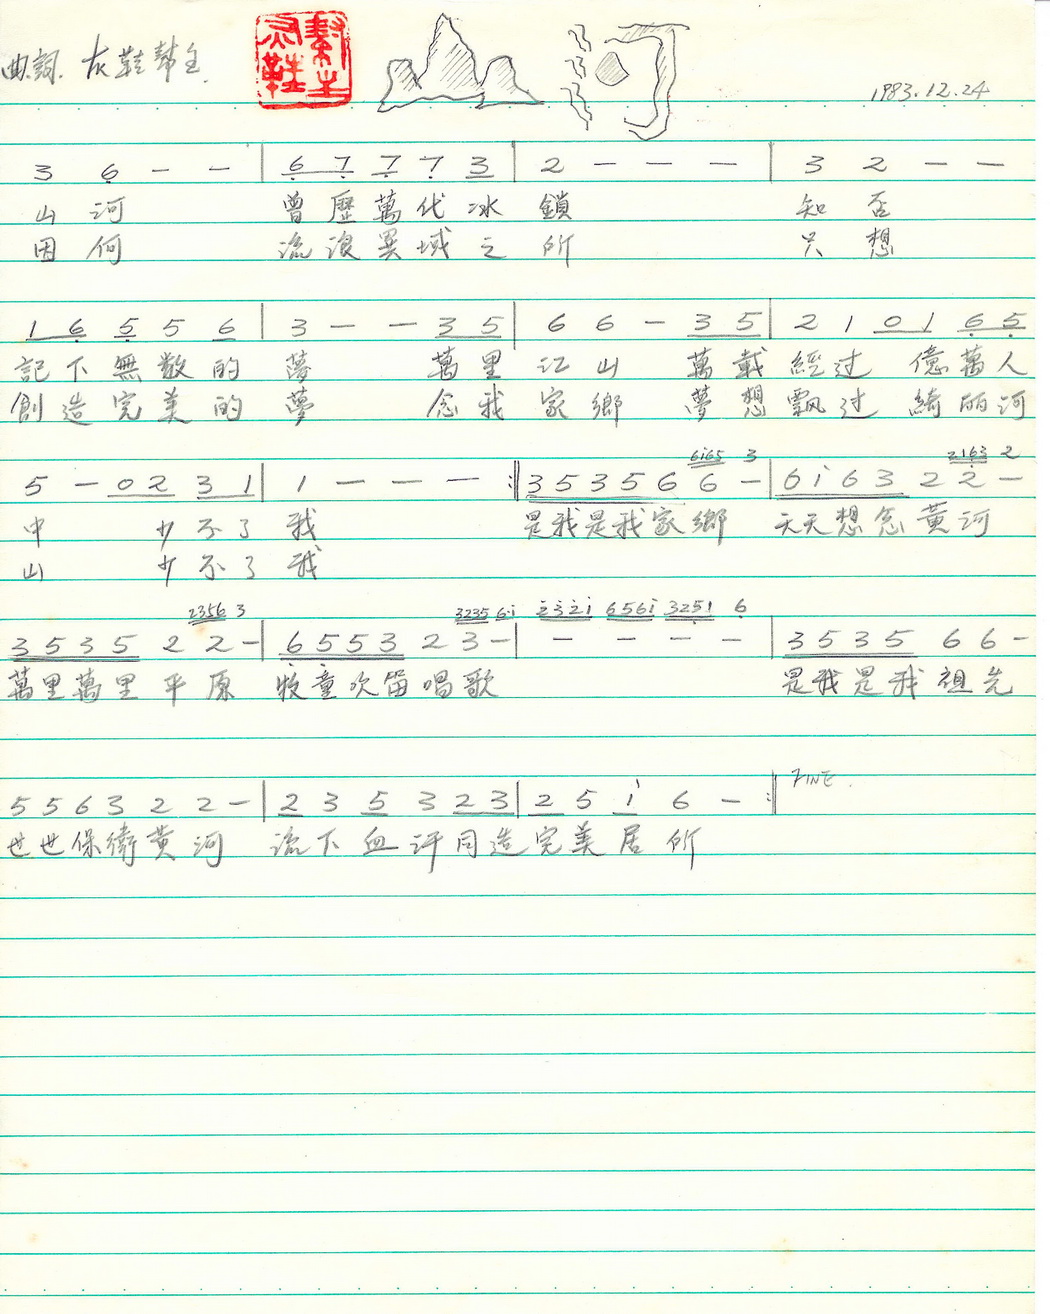 曲詞. 灰鞋幫主
山河
1983.12.24
3 6 — — | 6 7 7 7 3 | 2 — — — | 3 2 — —
山河 曾歷萬代冰鎖 知否
因何 流浪異域之所 只想
1 6 5 5 6 | 3 — — 3 5 | 6 6 — 3 5 | 2 1 0 1 6 5
記下無數的夢 萬里江山 萬載經过 億萬人
創造完美的夢 念我家鄉 夢想飄过 綺丽河
6i65 3 2163 2
5 — 0 2 3 1 | 1 — — — :‖ 3 5 3 5 6 6 — | 6 i 6 3 2 2 —
中 少不了我 是我是我家鄉 天天想念黃河
山 少不了我
2356 3 3235 6·i 2321 656i 3251 6
3 5 3 5 2 2 — | 6 5 5 3 2 3 — | — — — — | 3 5 3 5 6 6 —
萬里萬里平原 牧童吹笛唱歌 是我是我祖先
5 5 6 3 2 2 — | 2 3 5 3 2 3 | 2 5 i 6 — :‖ FINE.
世世保衛黃河 流下血汗同造完美居所